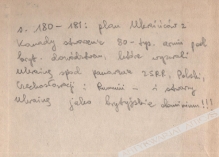 s. 180-181: plan Ukraińców z
Kanady stworzenia 80-tys. armii pod
bryt. dowództwem, która wyzwoli
Ukrainę spod panowania ZSRR, Polski,
Czechosłowacji i Rumunii – i stworzy
Ukrainę jako brytyjskie dominium!!!